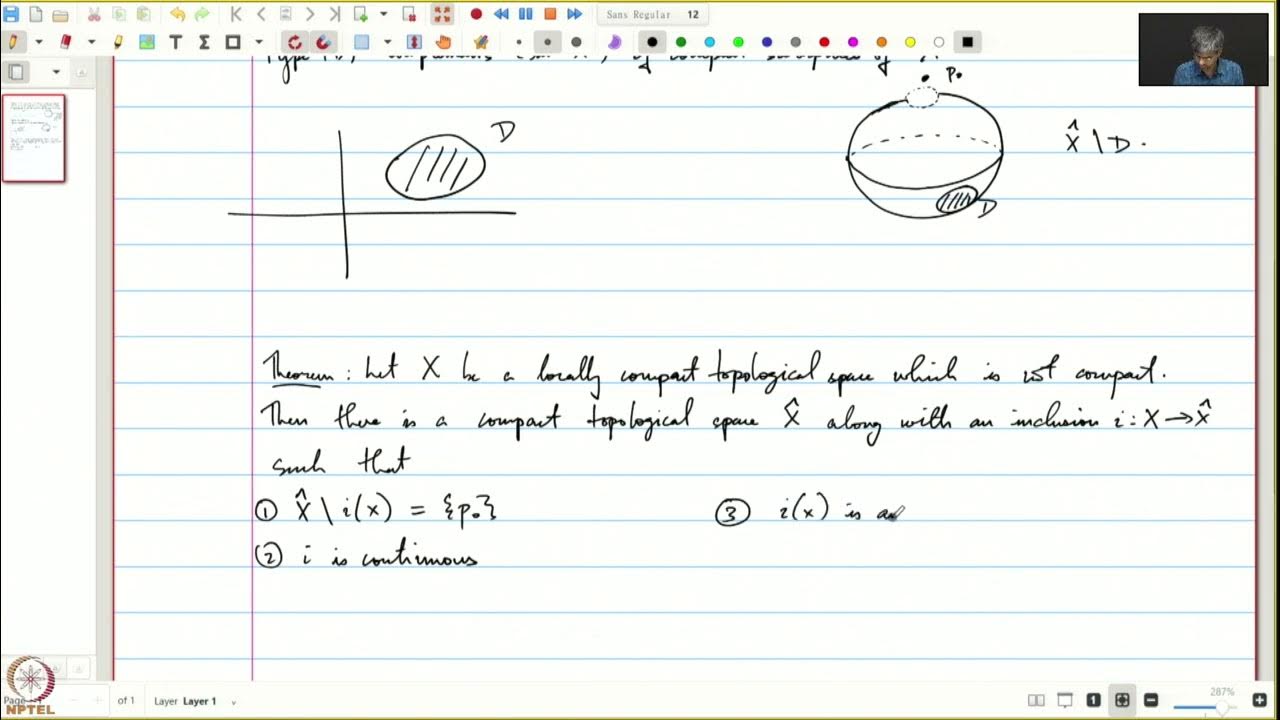 Sans Regular 12
Type
p₀
D
X̂ \ D.
D
Theorem: Let X be a locally compact topological space which is not compact.
Then there is a compact topological space X̂ along with an inclusion i: X → X̂
such that
① X̂ \ i(X) = {p₀} ③ i(X) is an
② i is continuous
Page of 1 Layer Layer 1 1 287%
NPTEL